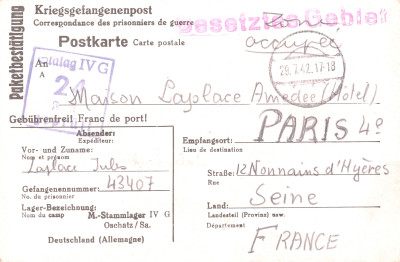 Paketbestätigung
Kriegsgefangenenpost
Correspondance des prisonniers de guerre
Besetztes Gebiet
Postkarte Carte postale
Zone
occupée
Stalag IV G
24
29.7.42.17-18
An
A
Maison Laplace Amédée (Hôtel)
Gebührenfrei! Franc de port!
PARIS 4e
Absender:
Expéditeur:
Empfangsort:
Lieu de destination
Vor- und Zuname:
Nom et prénom
Laplace Jules
Straße: 12 Nonnains d'Hyères
Rue
Gefangenennummer: 43407
No. du prisonnier
Land: Seine
Landesteil (Provinz) usw.
Département
Lager-Bezeichnung:
Nom du camp
M.-Stammlager IV G
Oschatz/Sa.
FRANCE
Deutschland (Allemagne)